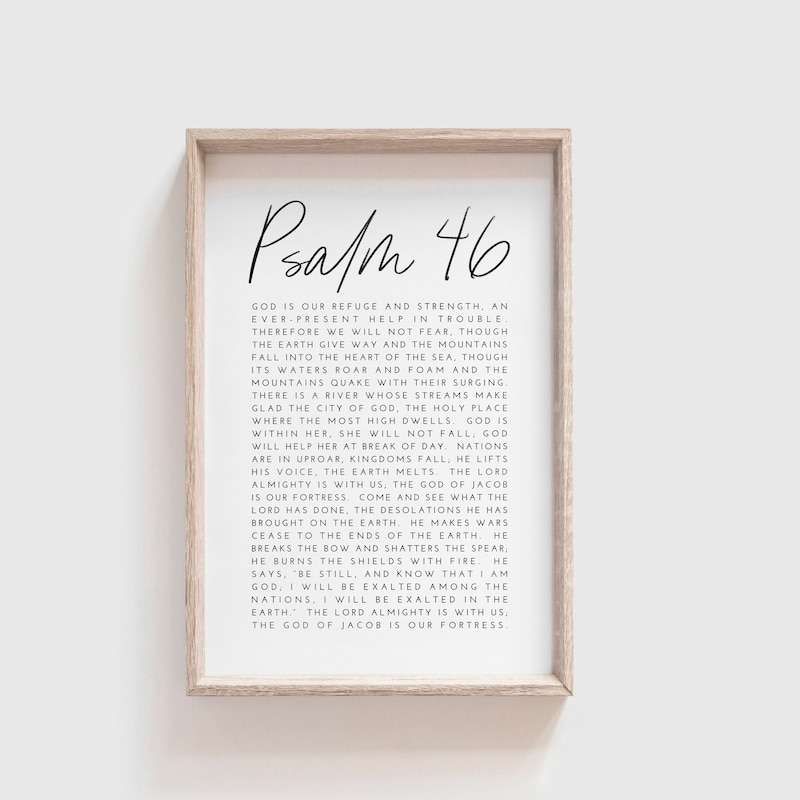 Psalm 46
GOD IS OUR REFUGE AND STRENGTH, AN
EVER-PRESENT HELP IN TROUBLE.
THEREFORE WE WILL NOT FEAR, THOUGH
THE EARTH GIVE WAY AND THE MOUNTAINS
FALL INTO THE HEART OF THE SEA, THOUGH
ITS WATERS ROAR AND FOAM AND THE
MOUNTAINS QUAKE WITH THEIR SURGING.
THERE IS A RIVER WHOSE STREAMS MAKE
GLAD THE CITY OF GOD, THE HOLY PLACE
WHERE THE MOST HIGH DWELLS. GOD IS
WITHIN HER, SHE WILL NOT FALL; GOD
WILL HELP HER AT BREAK OF DAY. NATIONS
ARE IN UPROAR, KINGDOMS FALL; HE LIFTS
HIS VOICE, THE EARTH MELTS. THE LORD
ALMIGHTY IS WITH US; THE GOD OF JACOB
IS OUR FORTRESS. COME AND SEE WHAT THE
LORD HAS DONE, THE DESOLATIONS HE HAS
BROUGHT ON THE EARTH. HE MAKES WARS
CEASE TO THE ENDS OF THE EARTH. HE
BREAKS THE BOW AND SHATTERS THE SPEAR;
HE BURNS THE SHIELDS WITH FIRE. HE
SAYS, "BE STILL, AND KNOW THAT I AM
GOD; I WILL BE EXALTED AMONG THE
NATIONS, I WILL BE EXALTED IN THE
EARTH." THE LORD ALMIGHTY IS WITH US;
THE GOD OF JACOB IS OUR FORTRESS.